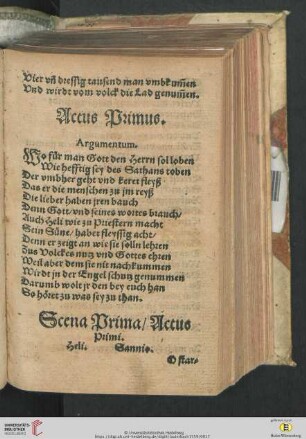 Vier vñ dreissig tausend man vmbkum̃en
Vnd wirdt vom volck die Lad genum̃en.
Actus Primus.
Argumentum.
Wo für man Gott den Herrn sol loben
Wie hefftig sey des Sathans toben
Der vmbher geht vnd keret fleyß
Das er die menschen zu jm reyß
Die lieber haben jren bauch
Denn Gott/ vnd seines wortes brauch/
Auch Heli wie zu Priestern macht
Sein Süne/ habet fleyssig acht/
Denn er zeigt an wie sie solln lehren
Zus Volckes nutz vnd Gottes ehren
Weil aber dem sie nit nachkummen
Wirdt jn der Engel schutz genummen
Darumb wolt jr den bey euch han
So höret zu was sey zu than.
Scena Prima/ Actus
Primi.
Heli. Sannio.
O star-
UNIVERSITÄTS-
BIBLIOTHEK
HEIDELBERG
© Universitätsbibliothek Heidelberg